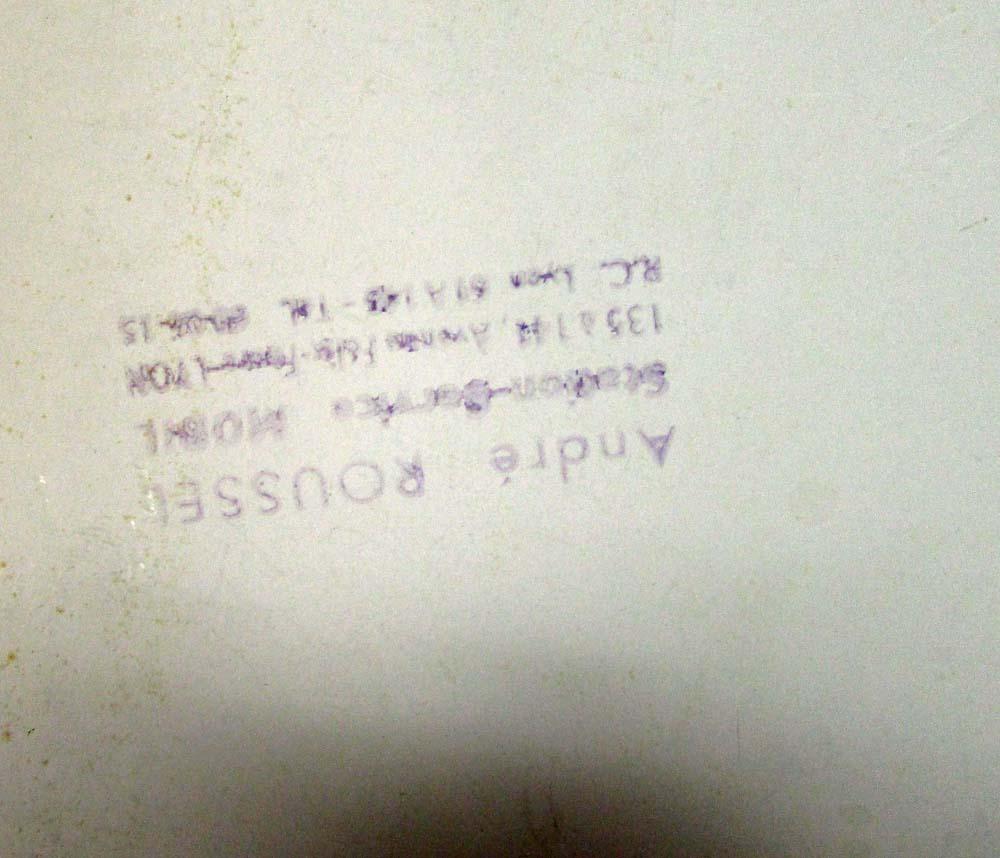 André ROUSSEL
Station-Service MOBIL
135 à Avenue Félix-Faure-LYON
R.C. Lyon 57 A - Tél. 15